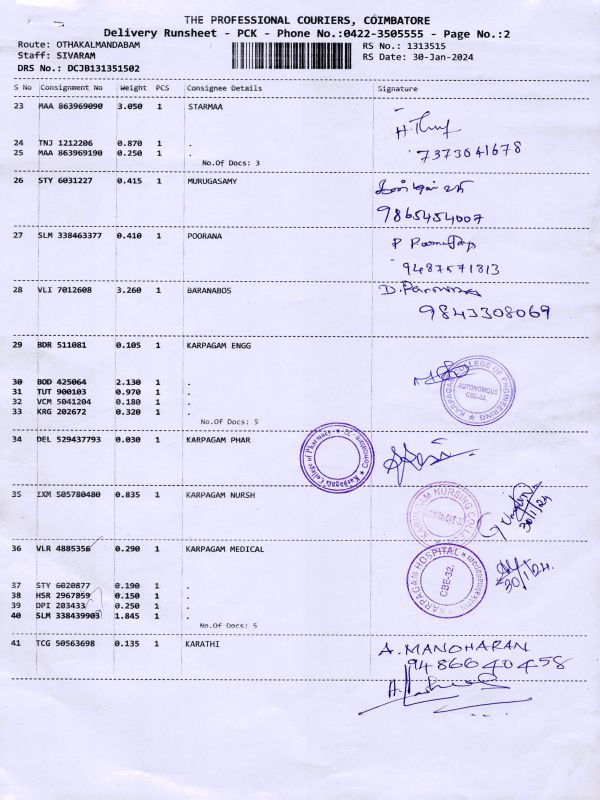 THE PROFESSIONAL COURIERS, COIMBATORE
Delivery Runsheet - PCK - Phone No.:0422-3505555 - Page No.:2
Route: OTHAKALMANDABAM
RS No.: 1313515
Staff: SIVARAM
RS Date: 30-Jan-2024
DRS No.: DCJB131351502
S No Consignment No Weight PCS Consignee Details Signature
23 MAA 863969090 3.050 1 STARMAA
24 TNJ 1212206 0.870 1 .
25 MAA 863969190 0.250 1 .
7373041678
No.Of Docs: 3
26 STY 6031227 0.415 1 MURUGASAMY
9865454007
27 SLM 338463377 0.410 1 POORANA
9487571813
28 VLI 7012608 3.260 1 BARANABOS
9843308069
29 BDR 511081 0.105 1 KARPAGAM ENGG
KARPAGAM COLLEGE OF ENGINEERING
AUTONOMOUS
CBE-32.
30 BOD 425064 2.130 1 .
31 TUT 900103 0.970 1 .
32 VCM 5041204 0.180 1 .
33 KRG 202672 0.320 1 .
No.Of Docs: 5
34 DEL 529437793 0.030 1 KARPAGAM PHAR
Karpagam College of Pharmacy
35 IXM 505780480 0.835 1 KARPAGAM NURSH
KARPAGAM NURSING COLLEGE
30/1/24
36 VLR 4885356 0.290 1 KARPAGAM MEDICAL
KARPAGAM HOSPITAL
CBE-32.
30/1/24.
37 STY 6020877 0.190 1 .
38 HSR 2967859 0.150 1 .
39 DPI 203433 0.250 1 .
40 SLM 338439903 1.845 1 .
No.Of Docs: 5
41 TCG 50563698 0.135 1 KARATHI
A. MANOHARAN
9486640458